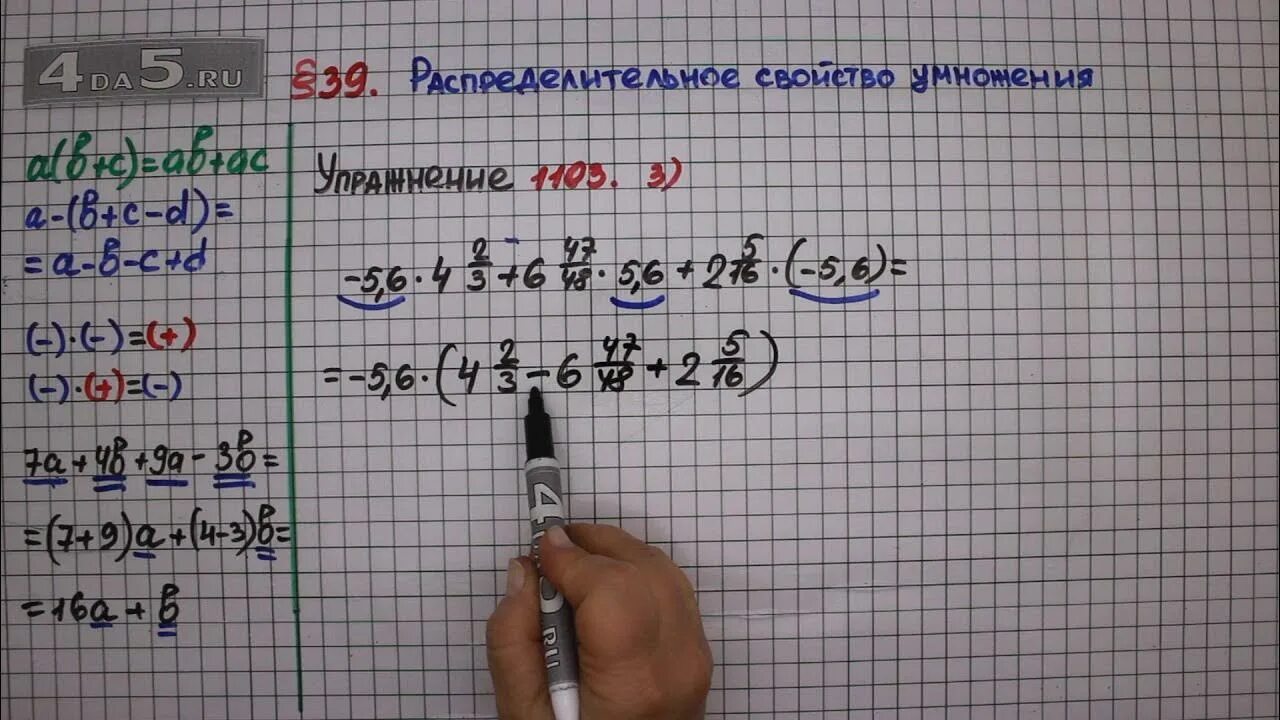 4DA5.RU
§39. Распределительное свойство умножения
a(b+c)=ab+ac
a-(b+c-d)=
=a-b-c+d
(-)·(-)=(+)
(-)·(+)=(-)
7a+4b+9a-3b=
=(7+9)a+(4-3)b=
=16a+b
Упражнение 1103. 3)
-5,6·4 2/3+6 47/48·5,6+2 5/16·(-5,6)=
=-5,6·(4 2/3-6 47/48+2 5/16)
4
RU